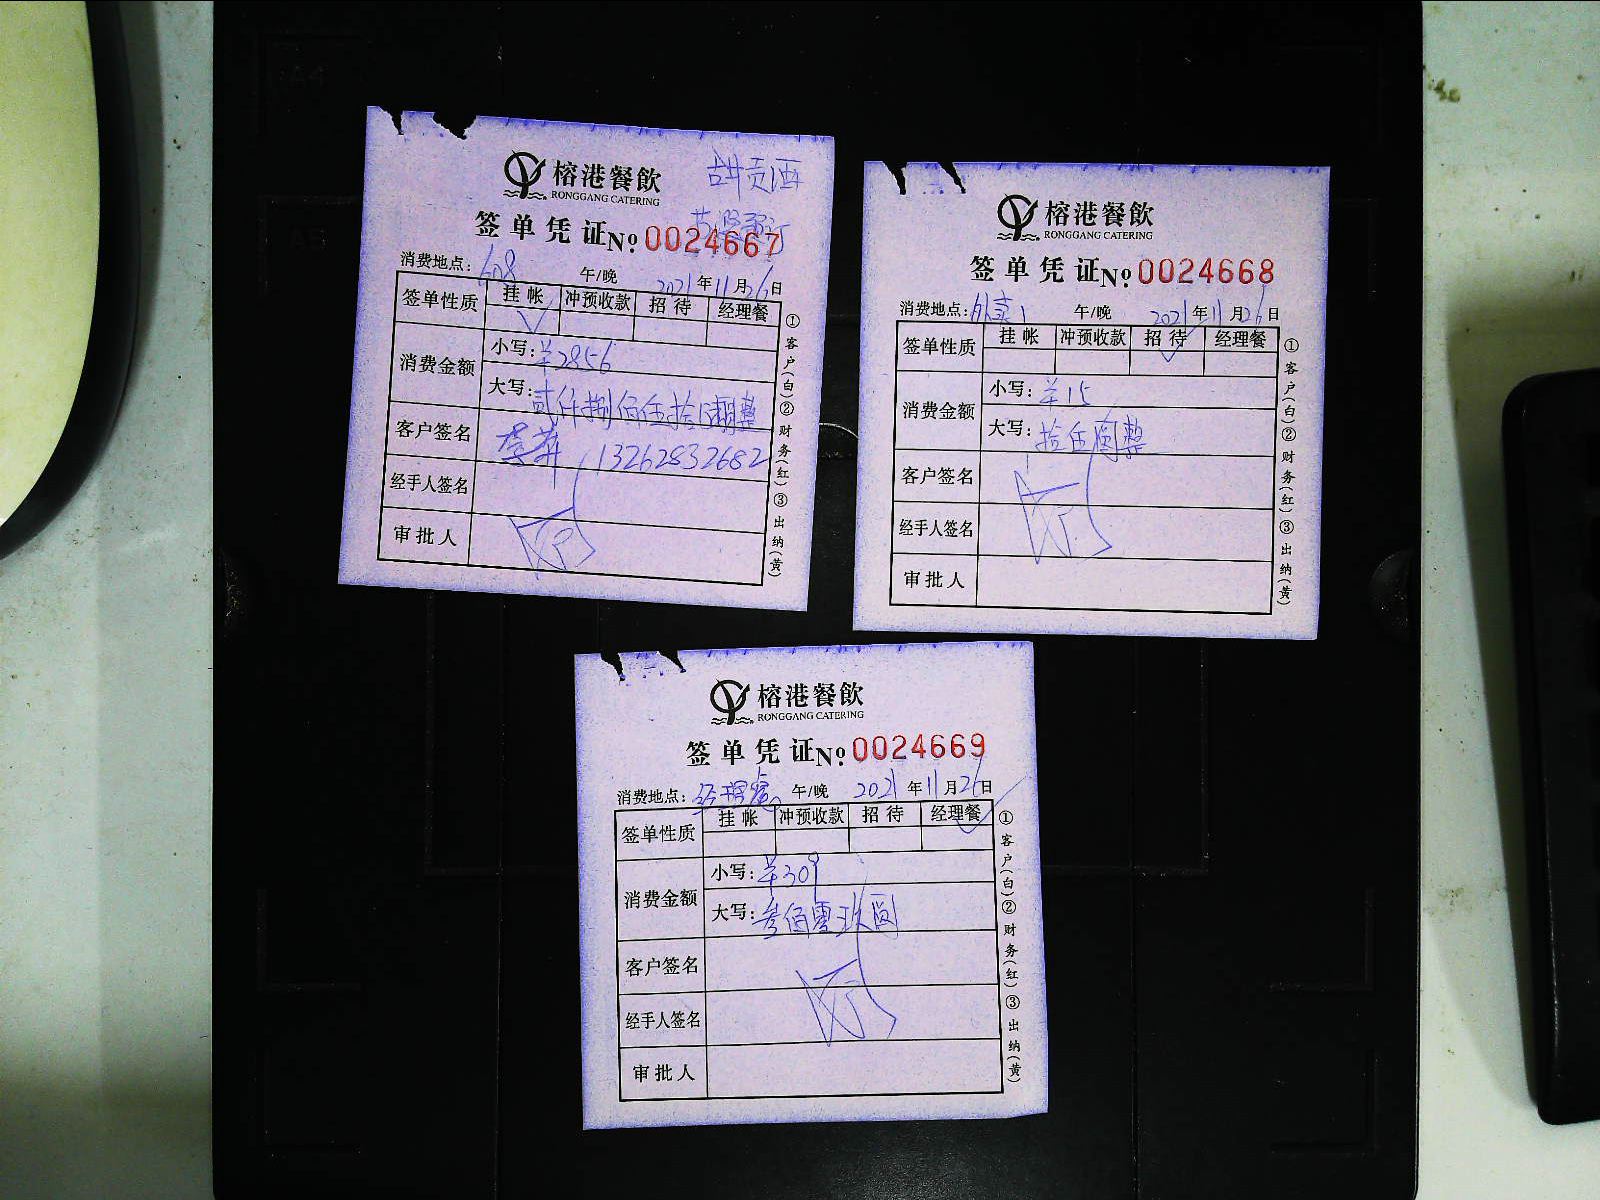 榕港餐飲
RONGGANG CATERING
古井贡酒
签单凭证№ 0024667
消费地点: 608 午/晚 2021年11月26日
签单性质 挂帐 冲预收款 招待 经理餐
消费金额 小写: ¥2856
大写: 贰仟捌佰伍拾陆圆整
客户签名 13262832682
经手人签名
审批人
①客户(白)②财务(红)③出纳(黄)
榕港餐飲
RONGGANG CATERING
签单凭证№ 0024668
消费地点: 外卖1 午/晚 2021年11月26日
签单性质 挂帐 冲预收款 招待 经理餐
消费金额 小写: ¥15
大写: 拾伍圆整
客户签名
经手人签名
审批人
①客户(白)②财务(红)③出纳(黄)
榕港餐飲
RONGGANG CATERING
签单凭证№ 0024669
消费地点: 经理餐 午/晚 2021年11月26日
签单性质 挂帐 冲预收款 招待 经理餐
消费金额 小写: ¥309
大写: 叁佰零玖圆
客户签名
经手人签名
审批人
①客户(白)②财务(红)③出纳(黄)